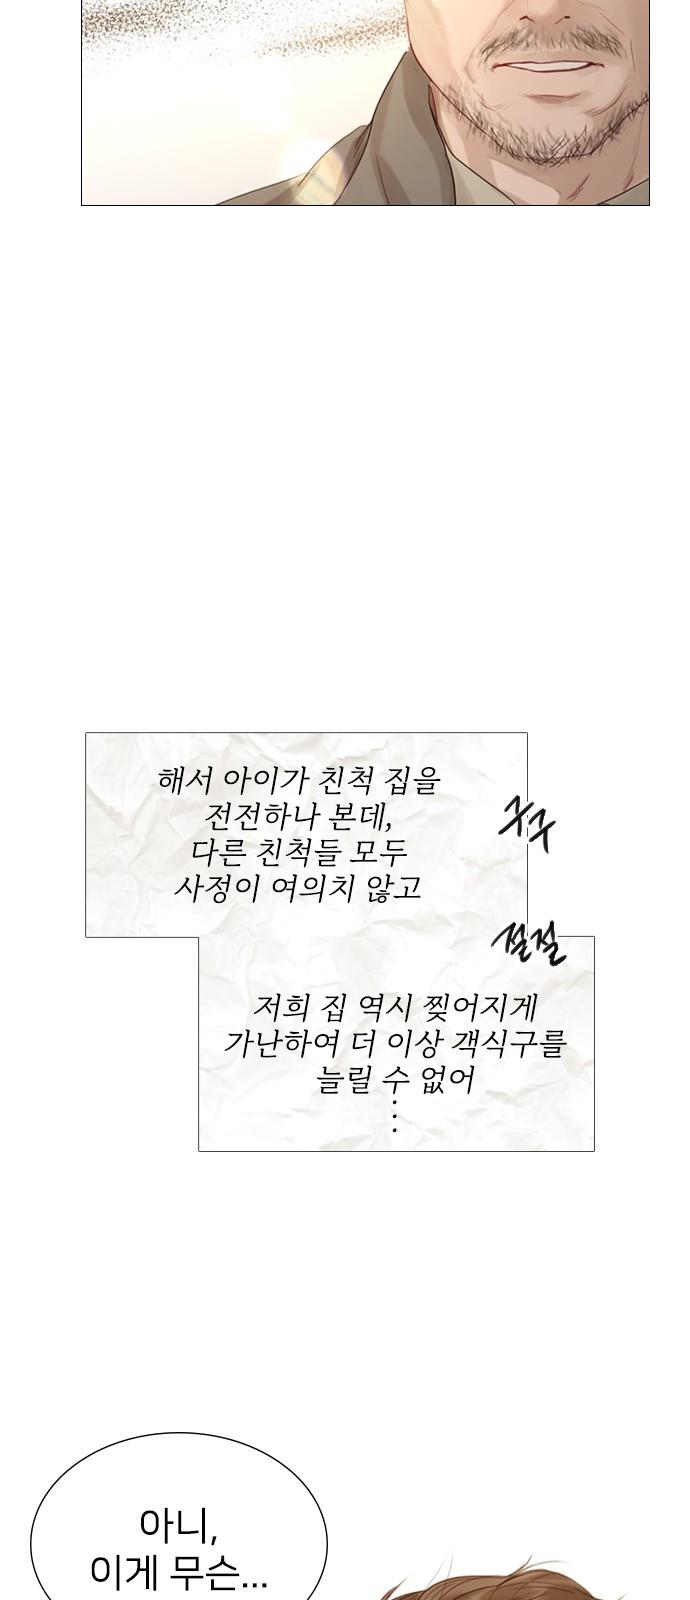 해서 아이가 친척 집을
전전하나 본데,
다른 친척들 모두
사정이 여의치 않고
구구
절절
저희 집 역시 찢어지게
가난하여 더 이상 객식구를
늘릴 수 없어
⋮
아니,
이게 무슨...